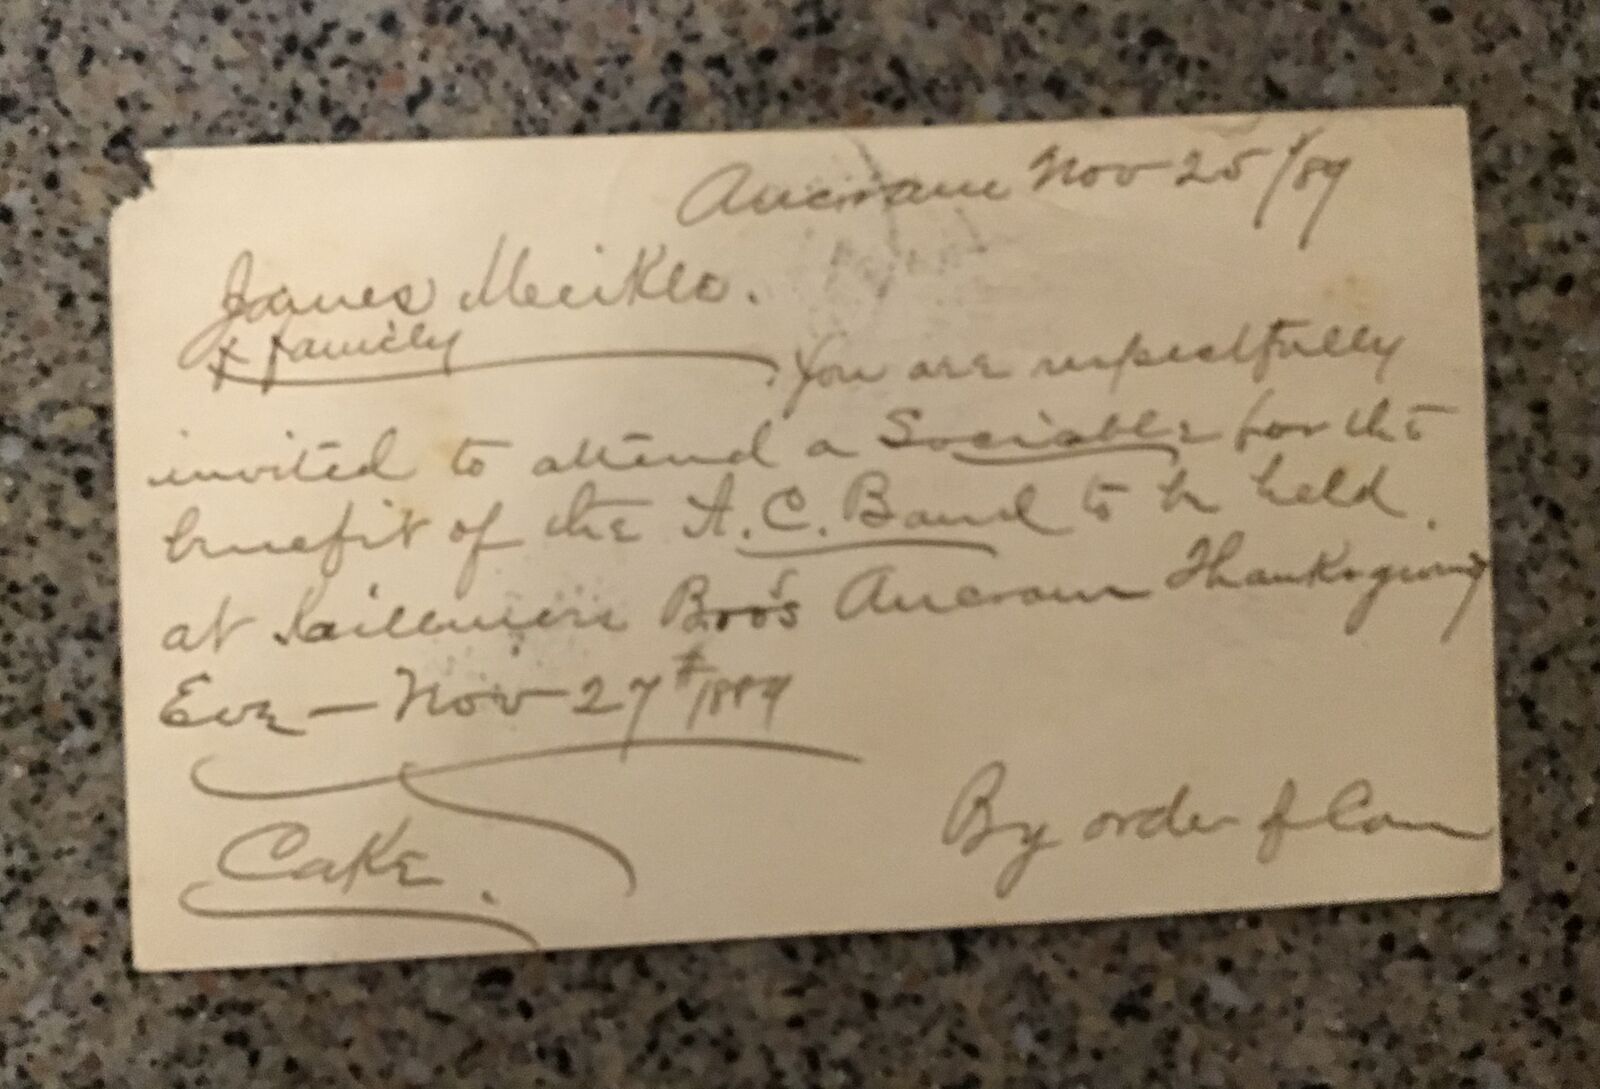 Ancram Nov 25/89
James Meikle.
& family
You are respectfully
invited to attend a Sociable for the
benefit of the A.C. Band to be held
at Bro's Ancram Thanksgiving
Eve — Nov 27th 1889
Cake.
By order of Com